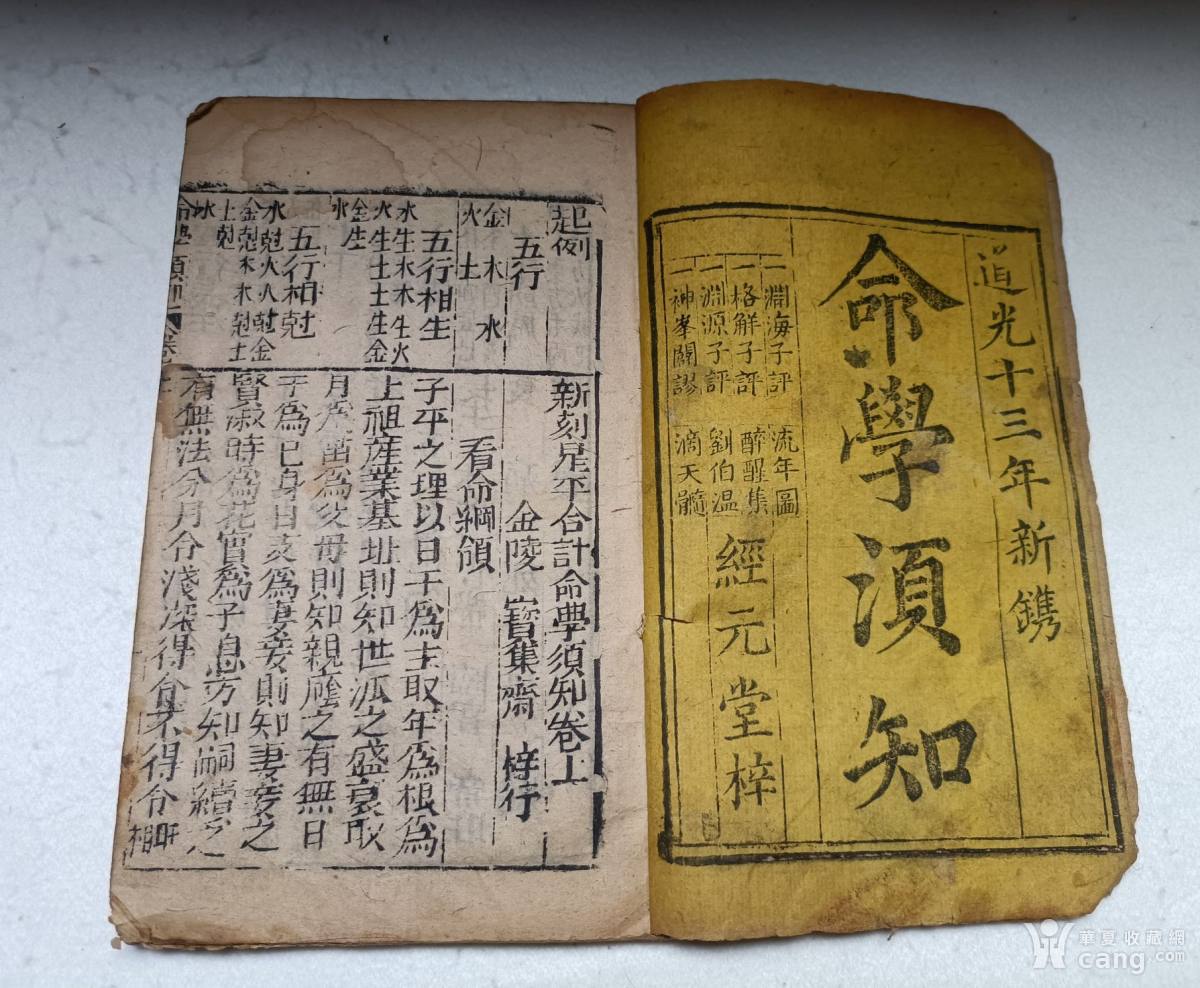 道光十三年新鐫
命學須知
一淵海子評 流年圖
一格解子評 醉醒集
一淵源子評 劉伯温
一神峯闢謬 滴天髓
經元堂梓
起例
五行
金木水
火土
五行相生
水生木木生火
火生土土生金
金生水
五行相尅
水尅火火尅金
金尅木木尅土
土尅水
新刻星平合訂命學須知卷上
金陵 寶集齋 梓行
看命綱領
子平之理以日干為主取年為根為
上祖産業基址則知世派之盛衰取
月為苗為父毋則知親蔭之有無日
干為己身日支為妻妾則知妻妾之
賢淑時為花實為子息方知嗣續之
有無法分月令淺深得令不得令
華夏收藏網
cang.com